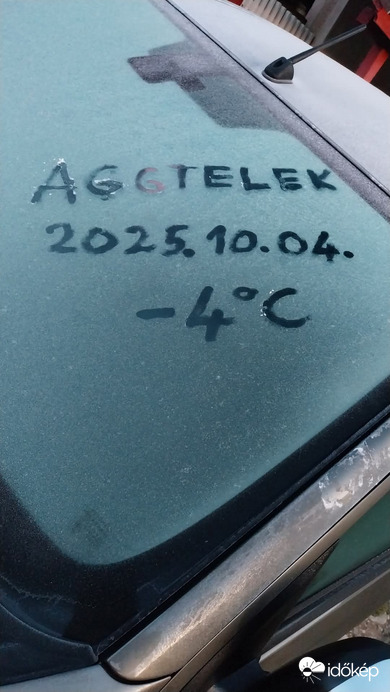 AGGTELEK
2025.10.04.
-4°C
időkép